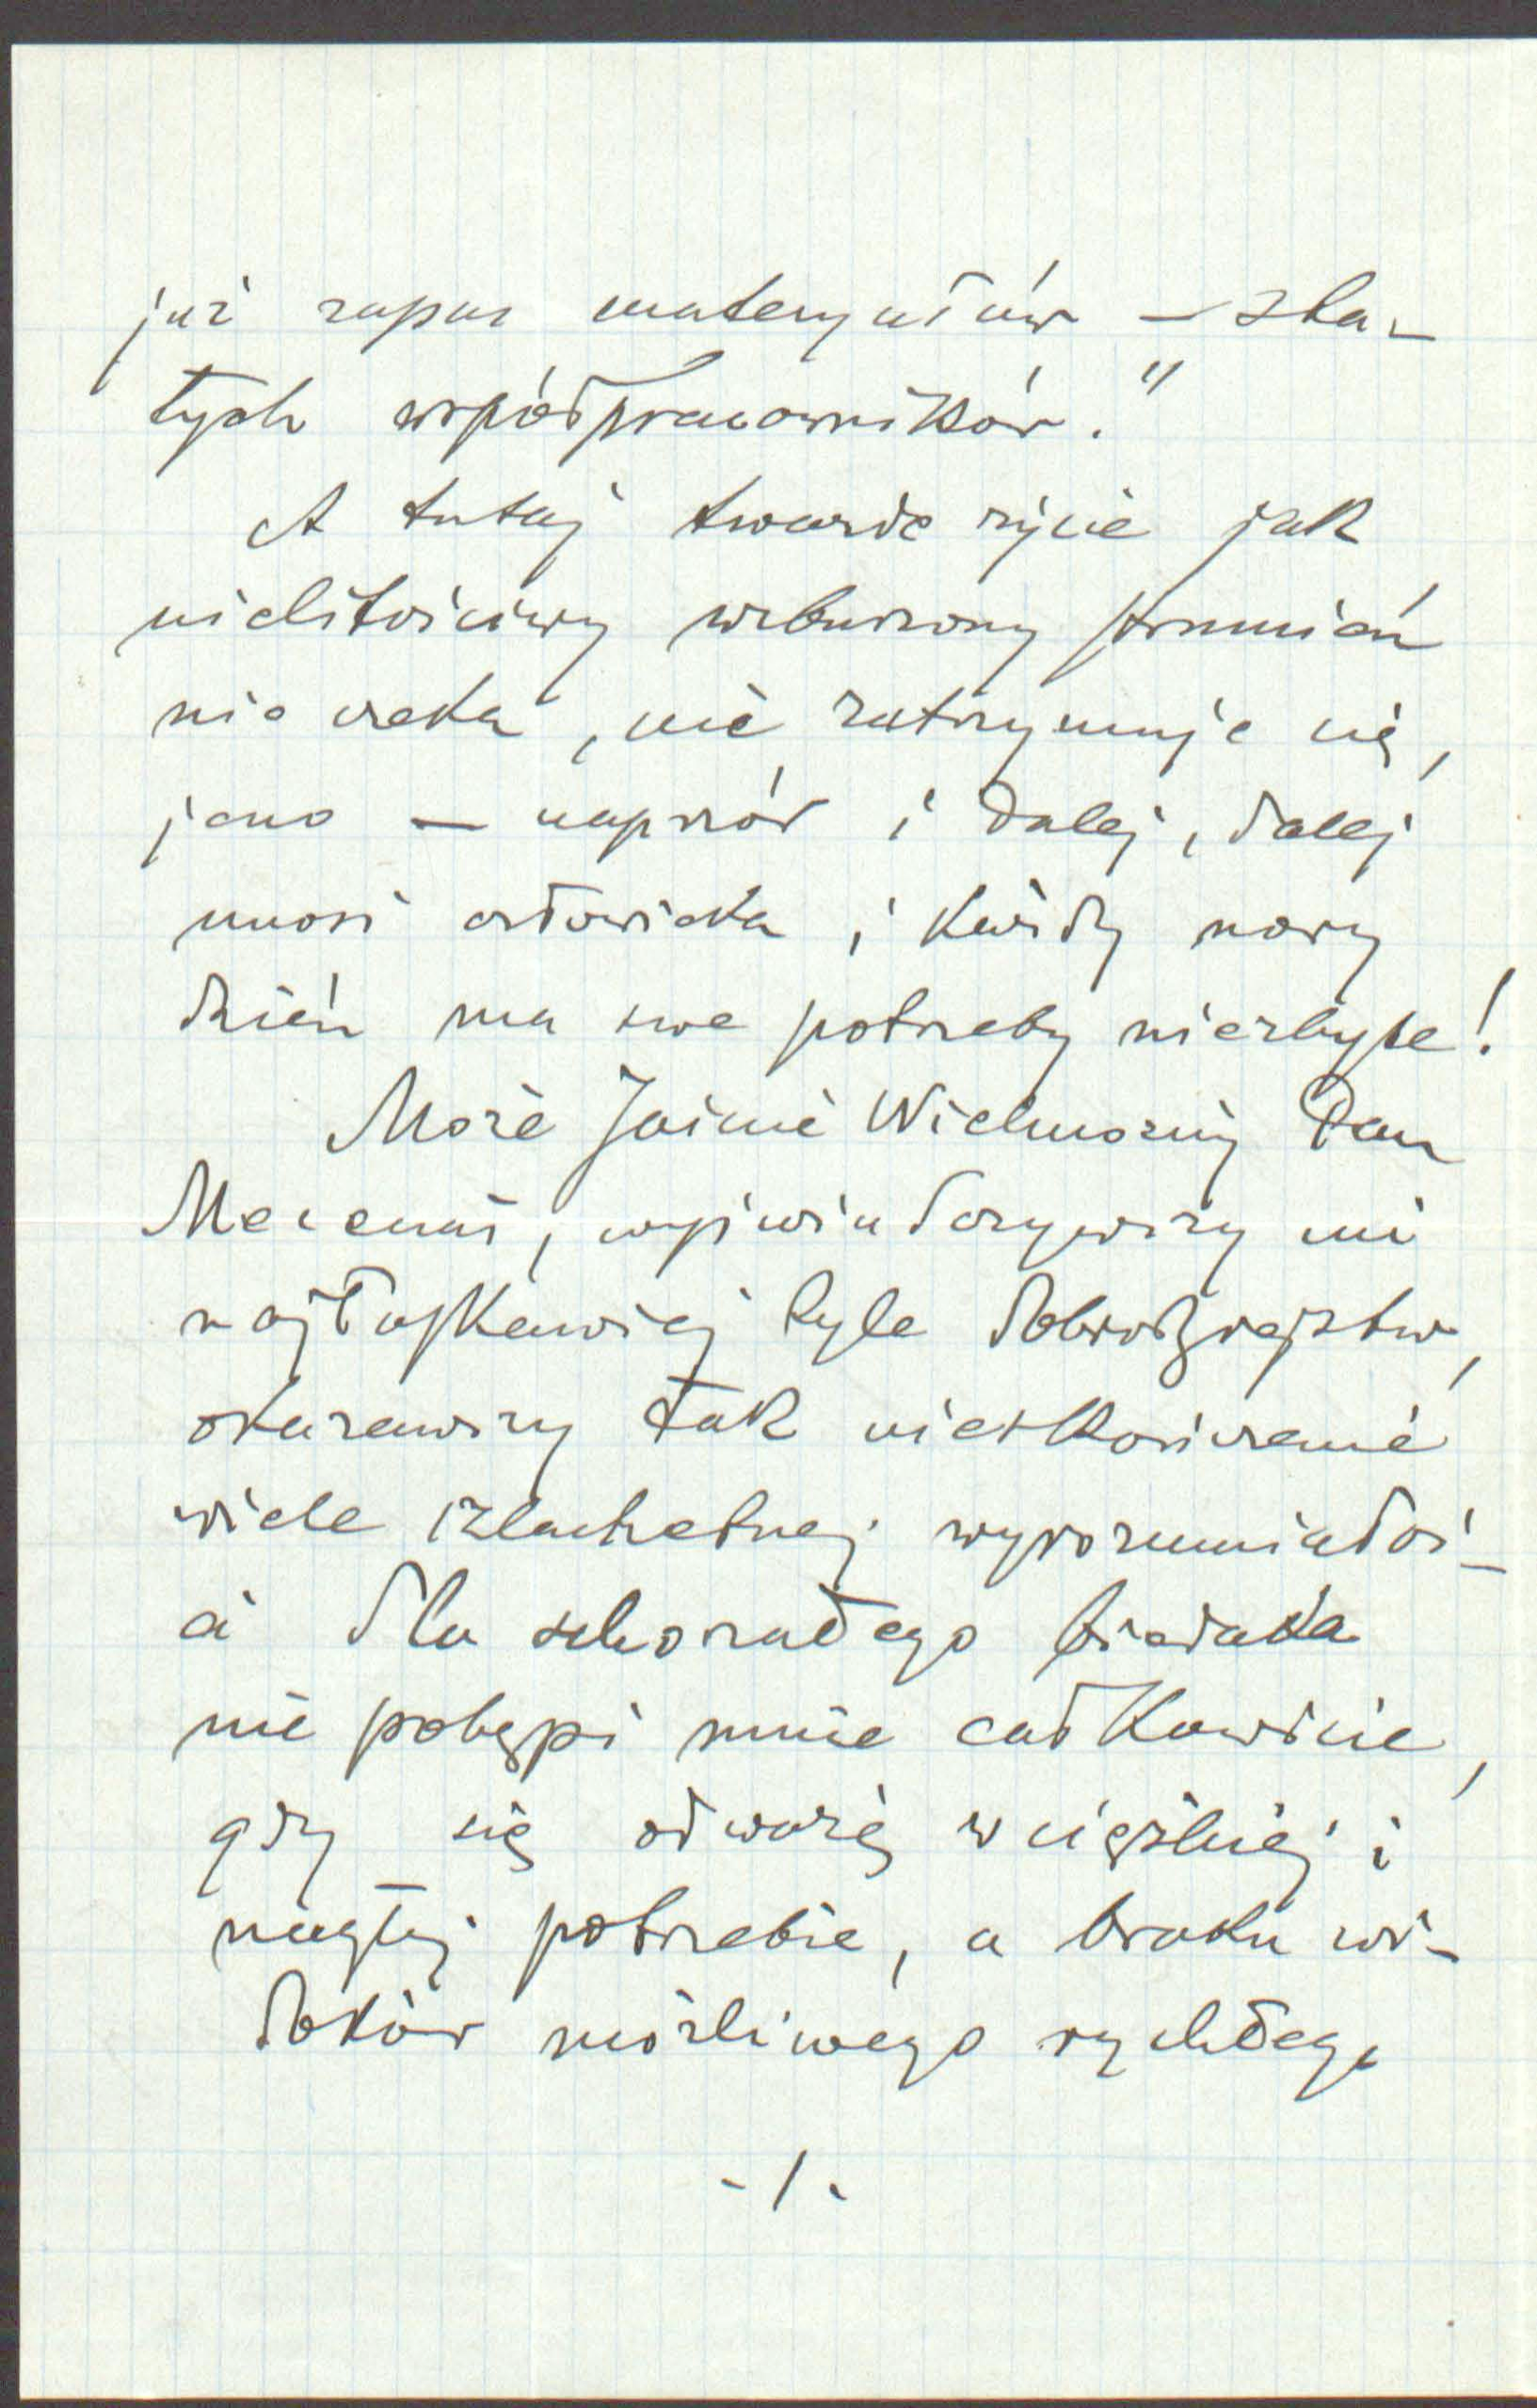 już zapas materyałów – sta-
łych współpracowników."
A tutaj twarde życie jak
nielitościwy wzburzony strumień
nie czeka, nie zatrzymuje się,
jeno – naprzód i dalej, dalej
unosi człowieka i każdy nowy
dzień ma swe potrzeby niezbyte!
Może Jaśnie Wielmożny Pan
Mecenas, wyświadczywszy mi
najłaskawiej tyle dobrodziejstw,
okazawszy tak nieskończenie
wiele szlachetnej wyrozumiałoś-
ci dla schorzałego biedaka
nie potępi mnie całkowicie,
gdy się odważę w ciężkiej i
nagłej potrzebie, a braku wi-
doków możliwego rychłego
-/-